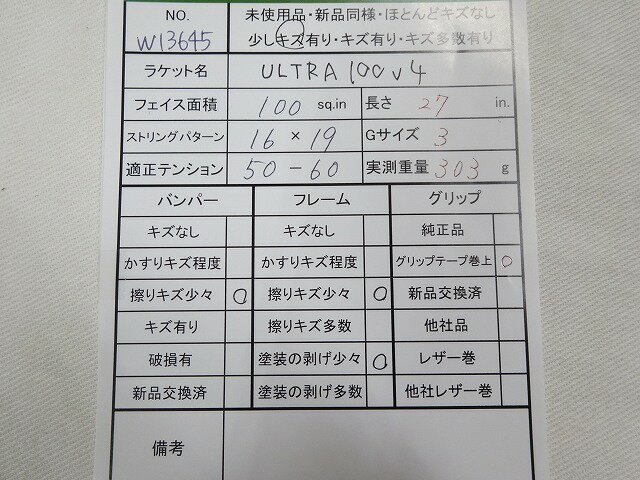 NO. 未使用品・新品同様・ほとんどキズなし
W13645 少しキズ有り・キズ有り・キズ多数有り
ラケット名 ULTRA 100 v4
フェイス面積 100 sq.in 長さ 27 in.
ストリングパターン 16 × 19 Gサイズ 3
適正テンション 50-60 実測重量 303 g
バンパー フレーム グリップ
キズなし キズなし 純正品
かすりキズ程度 かすりキズ程度 グリップテープ巻上 ○
擦りキズ少々 ○ 擦りキズ少々 ○ 新品交換済
キズ有り 擦りキズ多数 他社品
破損有 塗装の剥げ少々 ○ レザー巻
新品交換済 塗装の剥げ多数 他社レザー巻
備考